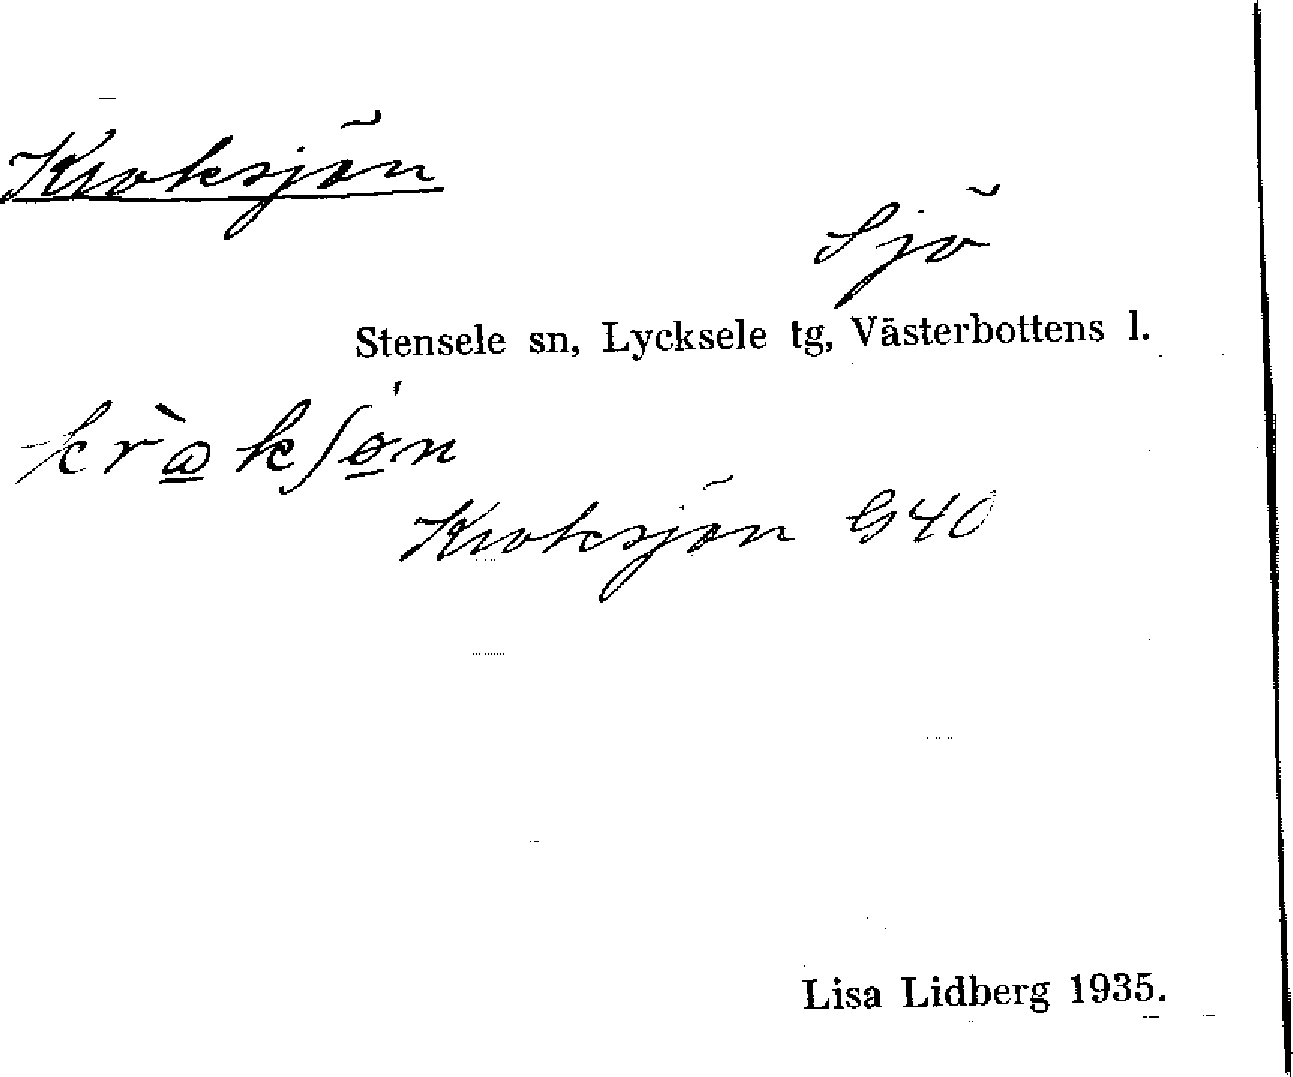 Kroksjön
Sjö
Stensele sn, Lycksele tg, Västerbottens l.
Kroksjön G40
Lisa Lidberg 1935.